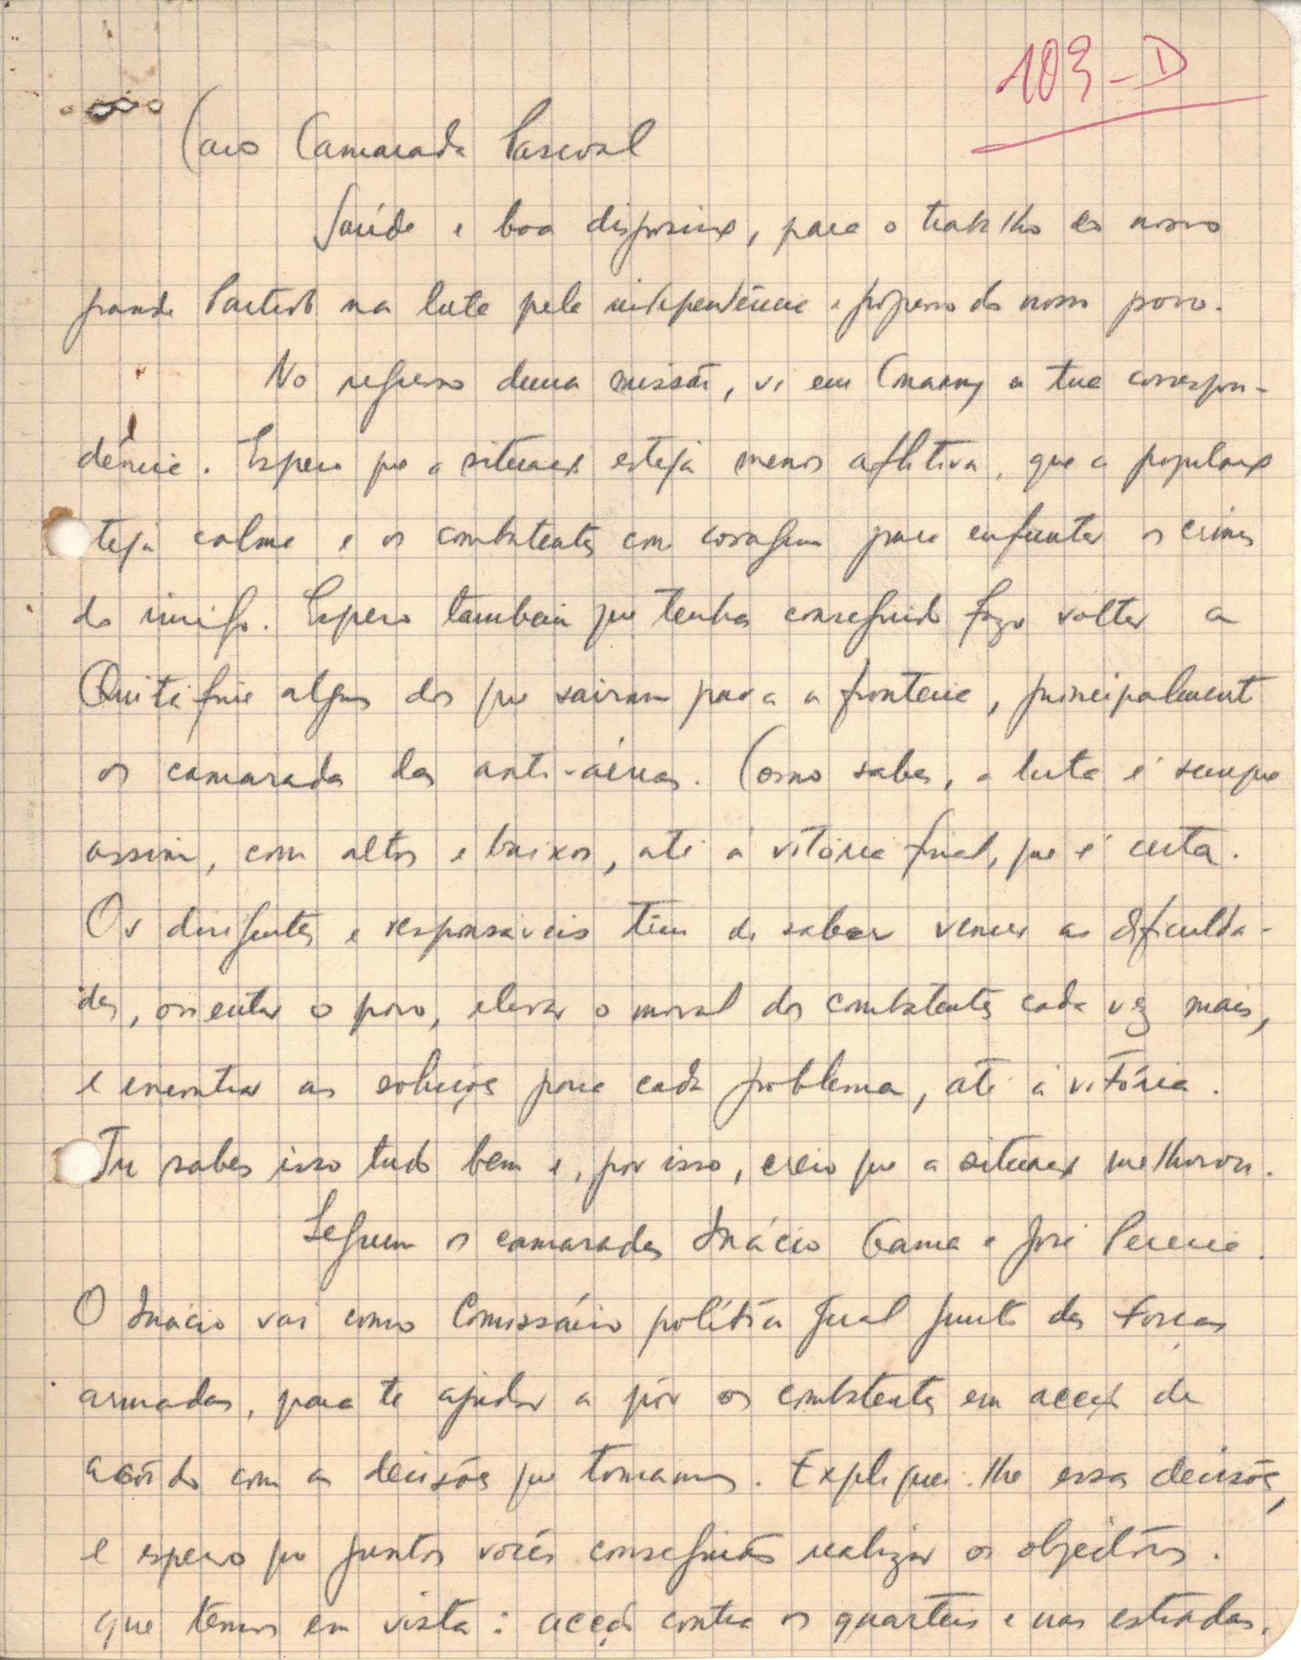 103-D
Caro Camarada Pascoal
Saúde e boa disposição, para o trabalho do nosso
grande Partido na luta pela independência e progresso do nosso povo.
No regresso duma missão, vi em Conakry a tua correspon-
dência. Espero que a situação esteja menos aflitiva, que a população
teja calma e os combatentes com coragem para enfrentar os crimes
do inimigo. Espero tambem que tenhas conseguido fazer voltar a
Quitafine alguns dos que sairam para a fronteira, principalmente
os camaradas das anti-aéreas. Como sabes, a luta é sempre
assim, com altos e baixos, até á vitória final, que é certa.
Os dirigentes e responsáveis têm de saber vencer as dificulda-
des, orientar o povo, elevar o moral dos combatentes cada vez mais,
e encontrar as soluções para cada problema, até á vitória.
Tu sabes isso tudo bem e, por isso, creio que a situação melhorou.
Seguem os camaradas Inácio Gama e José Pereira.
O Inácio vai como Comissário político geral junto das Forças
armadas, para te ajudar a pôr os combatentes em acção de
acôrdo com as decisões que tomamos. Expliquei-lhe essas decisões,
e espero que juntos vocês conseguirão realizar os objectivos.
que temos em vista: acção contra os quarteis e nas estradas.